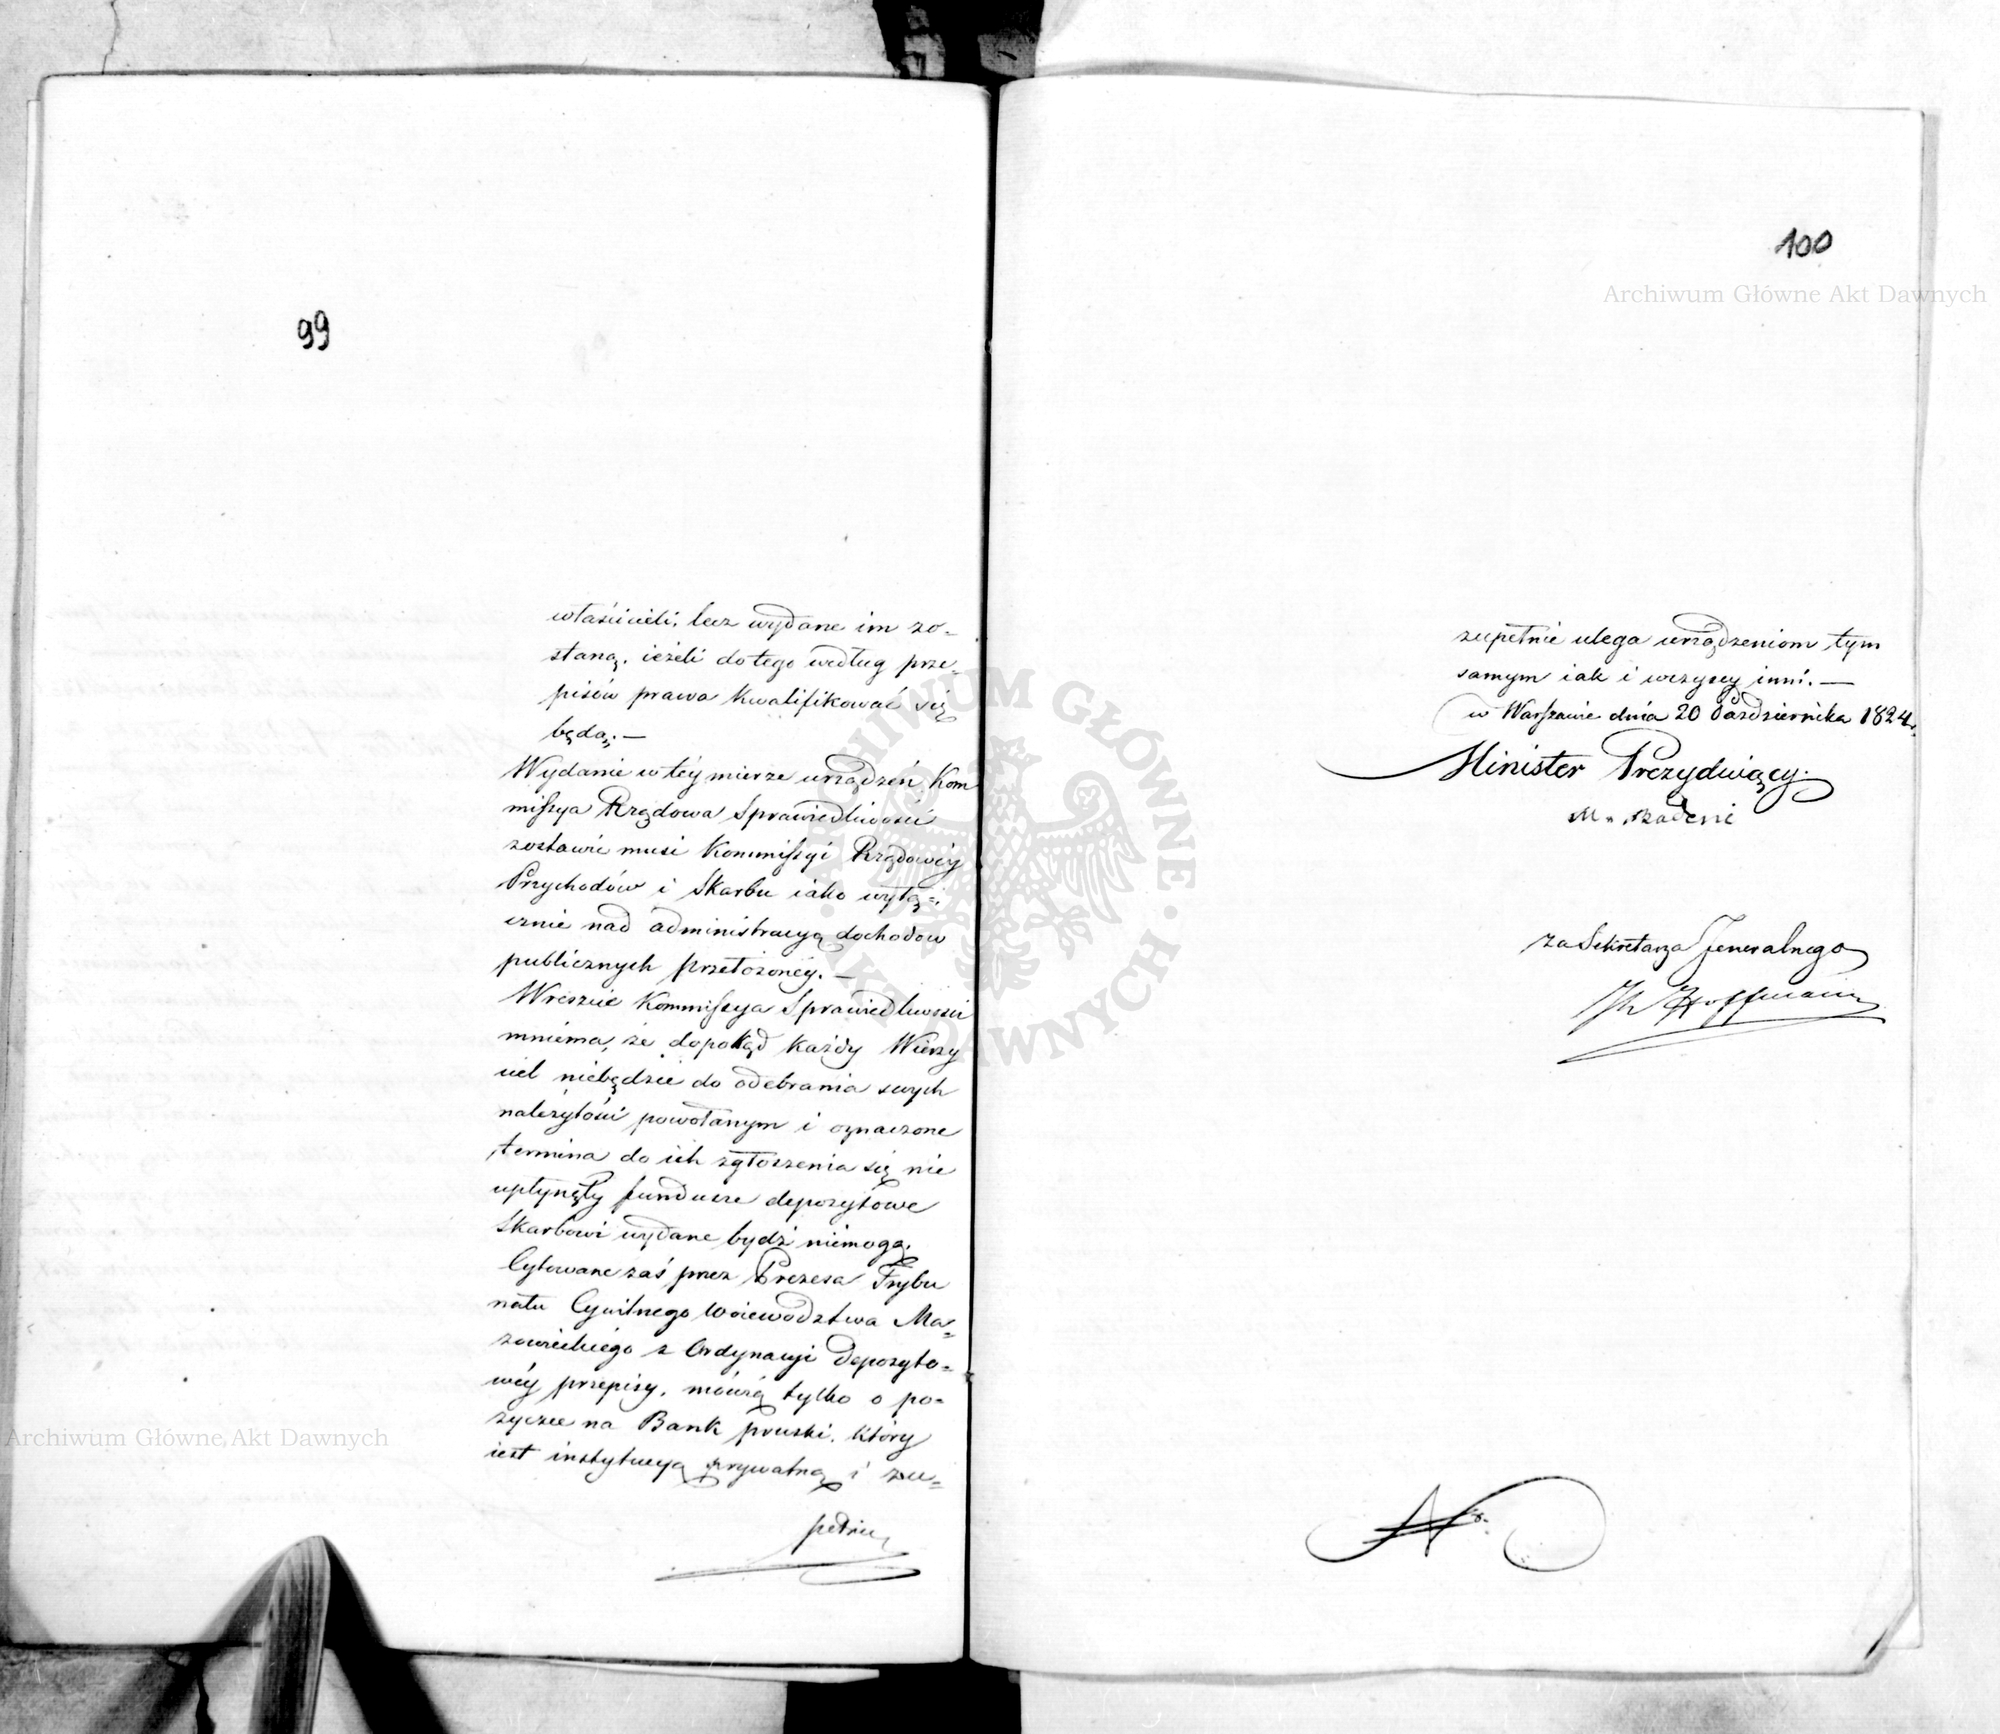 99
właścicieli, lecz wydane im zo-
staną, ieżeli do tego według prze-
pisów prawa kwalifikować się
będą. —
Wydanie w tey mierze urządzeń Kom
missya Rządowa Sprawiedliwości
zostawić musi Kommissyi Rządowey
Przychodów i Skarbu iako wyłą=
cznie nad administracyą dochodow
publicznych przełożoney. —
Wreszcie Kommissya Sprawiedliwości
mniema, że dopokąd każdy Wierzy
ciel niebędzie do odebrania swych
należytości powołanym i oznaczone
termina do ich zgłoszenia się nie
upłynęły fundusze depozytowe
Skarbowi wydane bydź niemogą.
Cytowane zaś przez Prezesa Trybu
nału Cywilnego Woiewództwa Ma=
zowieckiego z Ordynacyi Depozyto=
wey przepisy, mówią tylko o po=
życzce na Bank pruski, który
iest instytucyą prywatną i zu=
pełnie
100
zupełnie ulega urządzeniom tym
samym iak i wszyscy inni. —
w Warszawie dnia 20 Października 1824.
Minister Prezyduiący.
M. Badeni
za Sekretarza Jeneralnego
Hoffmann
Archiwum Główne Akt Dawnych
Archiwum Główne Akt Dawnych
ARCHIWUM GŁÓWNE · AKT DAWNYCH ·